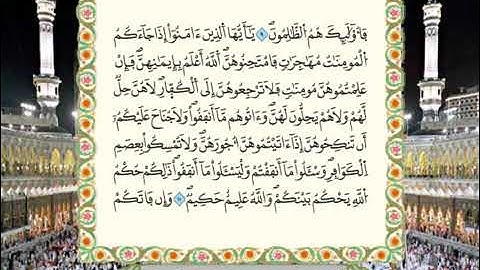 فَأُو۟لَٰٓئِكَ هُمُ ٱلظَّٰلِمُونَ ۝٩ يَٰٓأَيُّهَا ٱلَّذِينَ ءَامَنُوٓا۟ إِذَا جَآءَكُمُ
ٱلْمُؤْمِنَٰتُ مُهَٰجِرَٰتٍ فَٱمْتَحِنُوهُنَّ ۖ ٱللَّهُ أَعْلَمُ بِإِيمَٰنِهِنَّ ۖ فَإِنْ
عَلِمْتُمُوهُنَّ مُؤْمِنَٰتٍ فَلَا تَرْجِعُوهُنَّ إِلَى ٱلْكُفَّارِ ۖ لَا هُنَّ حِلٌّ
لَّهُمْ وَلَا هُمْ يَحِلُّونَ لَهُنَّ ۖ وَءَاتُوهُم مَّآ أَنفَقُوا۟ ۚ وَلَا جُنَاحَ عَلَيْكُمْ
أَن تَنكِحُوهُنَّ إِذَآ ءَاتَيْتُمُوهُنَّ أُجُورَهُنَّ ۚ وَلَا تُمْسِكُوا۟ بِعِصَمِ
ٱلْكَوَافِرِ وَسْـَٔلُوا۟ مَآ أَنفَقْتُمْ وَلْيَسْـَٔلُوا۟ مَآ أَنفَقُوا۟ ۚ ذَٰلِكُمْ حُكْمُ
ٱللَّهِ ۖ يَحْكُمُ بَيْنَكُمْ ۚ وَٱللَّهُ عَلِيمٌ حَكِيمٌ ۝١٠ وَإِن فَاتَكُمْ